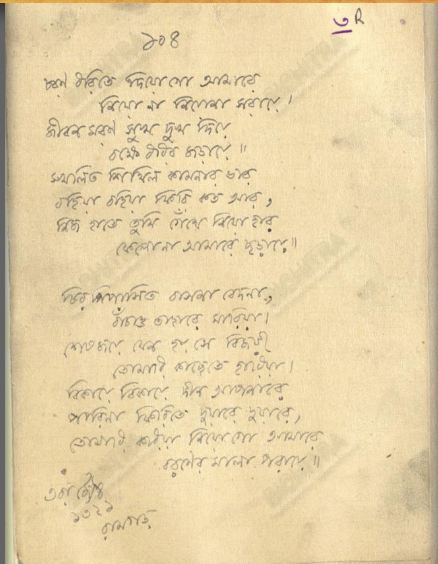 ১০৪
৩R
চরণ ধরিতে দিয়োগো আমারে
নিয়ো না নিয়োনা সরায়ে।
জীবন মরণ সুখ দুখ দিয়ে
বক্ষে ধরিব জড়ায়ে॥
স্খলিত শিথিল কামনার ভার
বহিয়া বহিয়া ফিরি কত আর,
নিজ হাতে তুমি গেঁথে নিয়ো হার
ফেলোনা আমারে ছড়ায়ে॥
চির পিপাসিত বাসনা বেদনা,
বাঁচাও তাহারে মারিয়া।
শেষজয়ে যেন হয় সে বিজয়ী
তোমারি কাছেতে হারিয়া।
বিকায়ে বিকায়ে দীন আপনারে
পারিনা ফিরিতে দুয়ারে দুয়ারে,
তোমারি করিয়া নিয়োগো আমারে
বরণের মালা পরায়ে॥
৩রা জ্যৈষ্ঠ
১৩২১
রামগড়